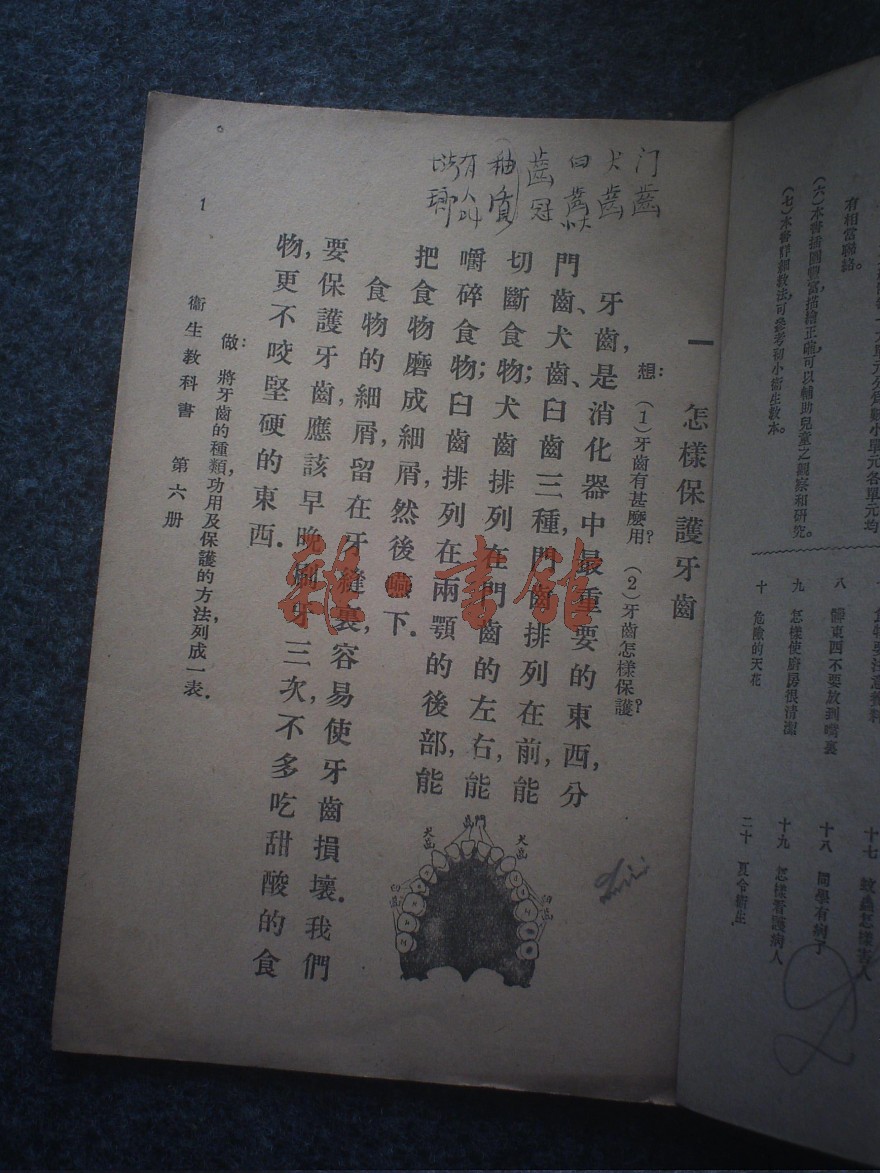 有相當聯絡。
(六)本書插圖豐富,描繪正確,可以輔助兒童之觀察和研究。
(七)本書詳細教法,可參考初小衞生教本。
八 髒東西不要放到嘴裏
九 怎樣使廚房很清潔
十 危險的天花
十七 蚊蟲怎樣害人
十八 同學有病了
十九 怎樣看護病人
二十 夏令衞生
门齒
犬齒
臼齒
齒冠
釉質
琺瑯
一 怎樣保護牙齒
想:(1)牙齒有甚麼用?(2)牙齒怎樣保護?
牙齒,是消化器中最重要的東西,分
門齒、犬齒、臼齒三種,門齒排列在前,能
切斷食物;犬齒排列在門齒的左右,能
嚼碎食物;臼齒排列在兩顎的後部,能
把食物磨成細屑,然後嚥下.
食物的細屑,留在牙縫裏,容易使牙齒損壞.我們
要保護牙齒,應該早晚刷牙,三次,不多吃甜酸的食
物,更不咬堅硬的東西.
做:將牙齒的種類,功用及保護的方法,列成一表.
門齒
犬齒
犬齒
臼齒
臼齒
衞生教科書 第六册
1
雜·書館